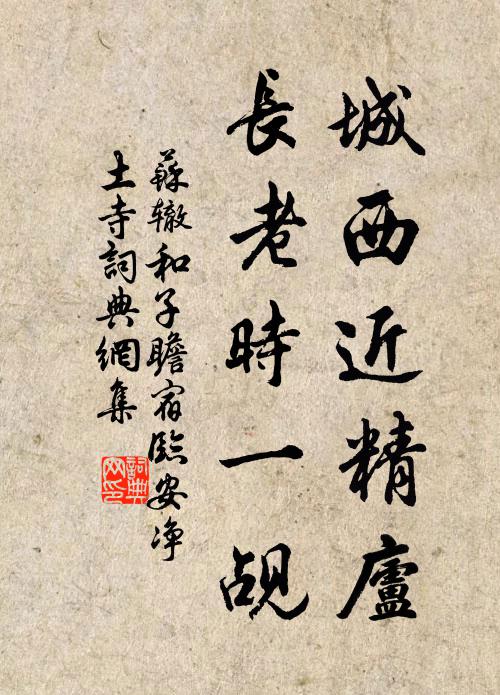 城西近精廬
長老時一覘
蘇轍和子瞻宿臨安净
土寺詞典網集
詞典
网印